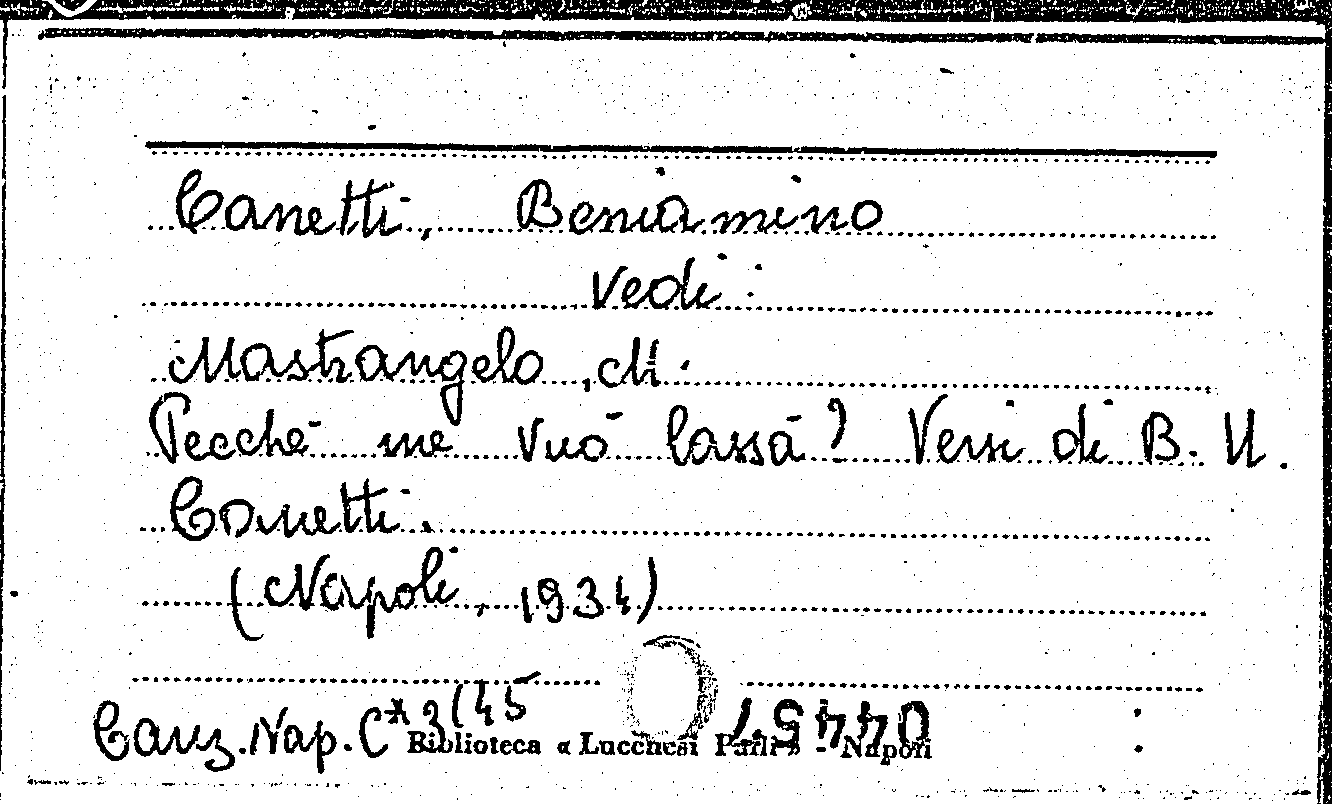 Canetti, Beniamino
Vedi:
Mastrangelo, M.
Pecchè me vuò lassà? Versi di B. U.
Conetti.
(Napoli, 1934)
Canz. Nap. C* 3(45
Biblioteca « Lucchesi Palli » - Napoli
044457